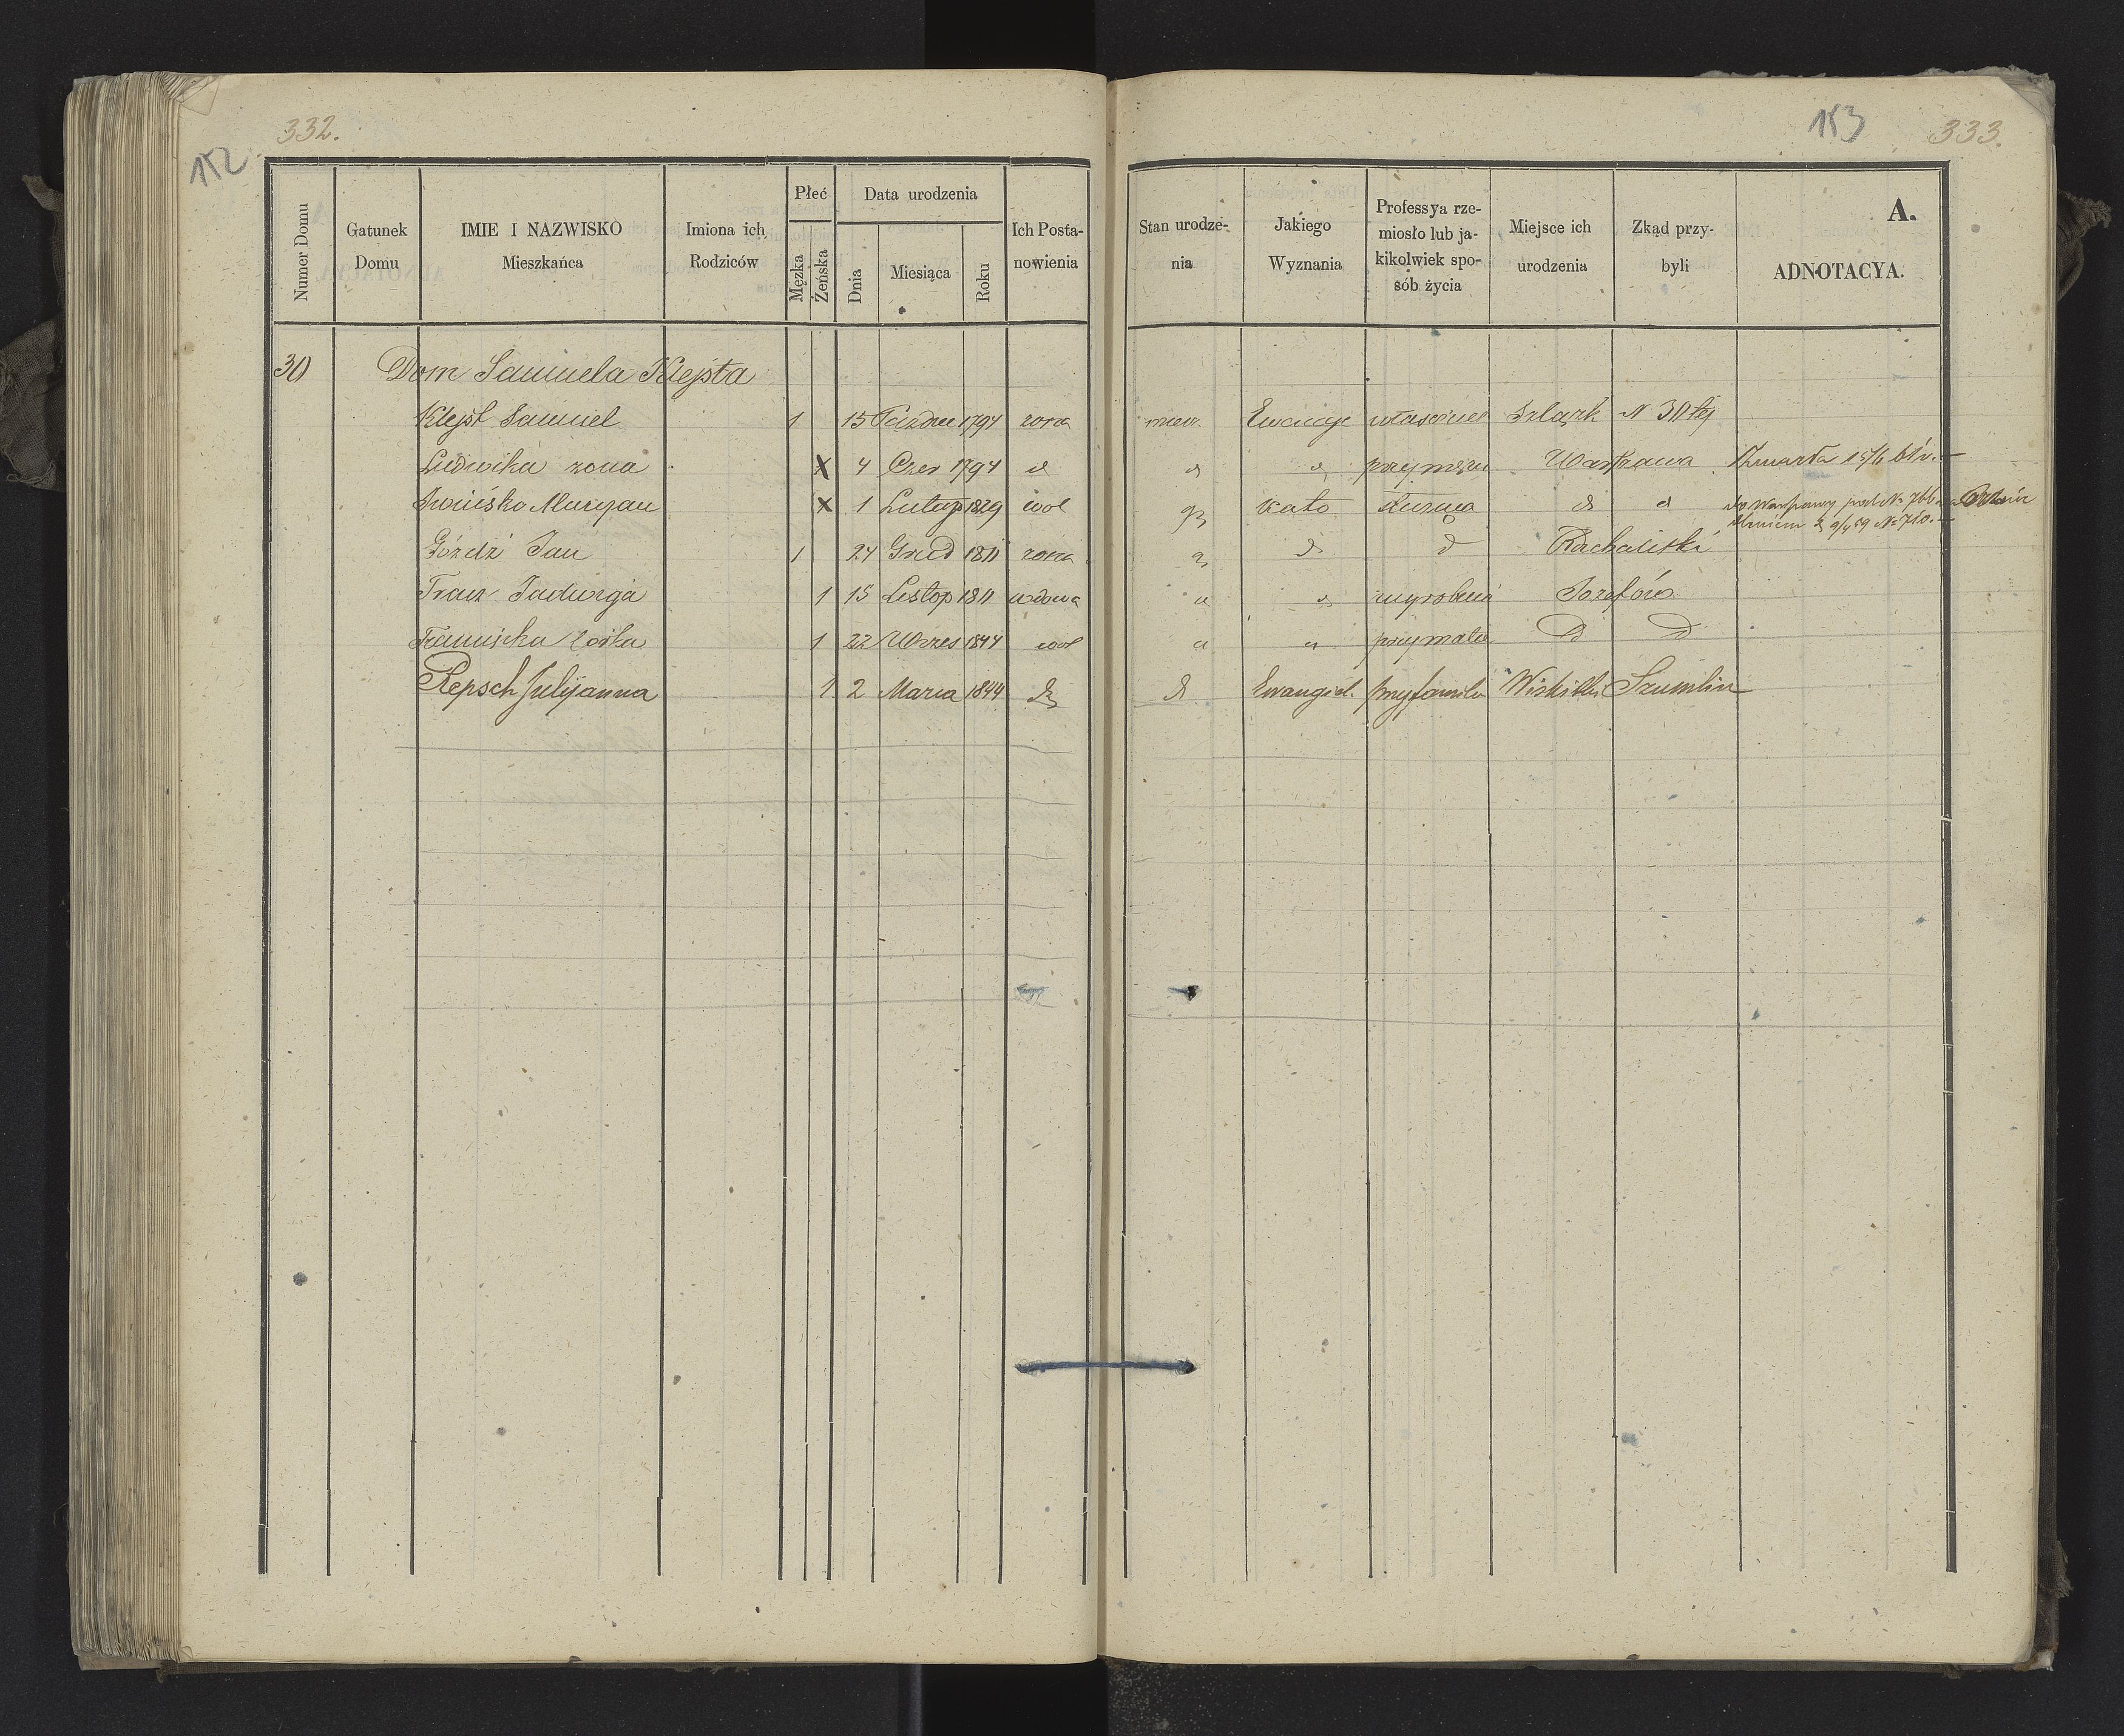 332.
152
Numer Domu
Gatunek Domu
IMIE I NAZWISKO Mieszkańca
Imiona ich Rodziców
Płeć
Męzka
Żeńska
Data urodzenia
Dnia
Miesiąca
Roku
Ich Postanowienia
30 Dom Samuela Klejsta
Klejst Samuel 1 15 1794 zona
Ludwika zona X 4 Czer 1794 d
X 1 Lutego 1829 wol
Góźdź Jan 1 24 Grud 1811 zona
Jadwiga 1 15 Listop 1811 wdowa
Franciszka córka 1 22 Wrzes 1844 wol
Repsch Julijanna 1 2 Marca 1844 d
153
333.
Stan urodzenia
Jakiego Wyznania
Professya rzemiosło lub jakikolwiek sposób życia
Miejsce ich urodzenia
Zkąd przybyli
A.
ADNOTACYA.
miesz. Ewange właściciel Szląsk N 30
d d przy mężu Warszawa Zmarła 15/6 61 r.
kato d d do Warszawy pod No 766
9/4 59 No 710.
d d
d wyrobnica Józefów
przy matce D D
d Ewangiel. przy familii Wiskitki Szumlin